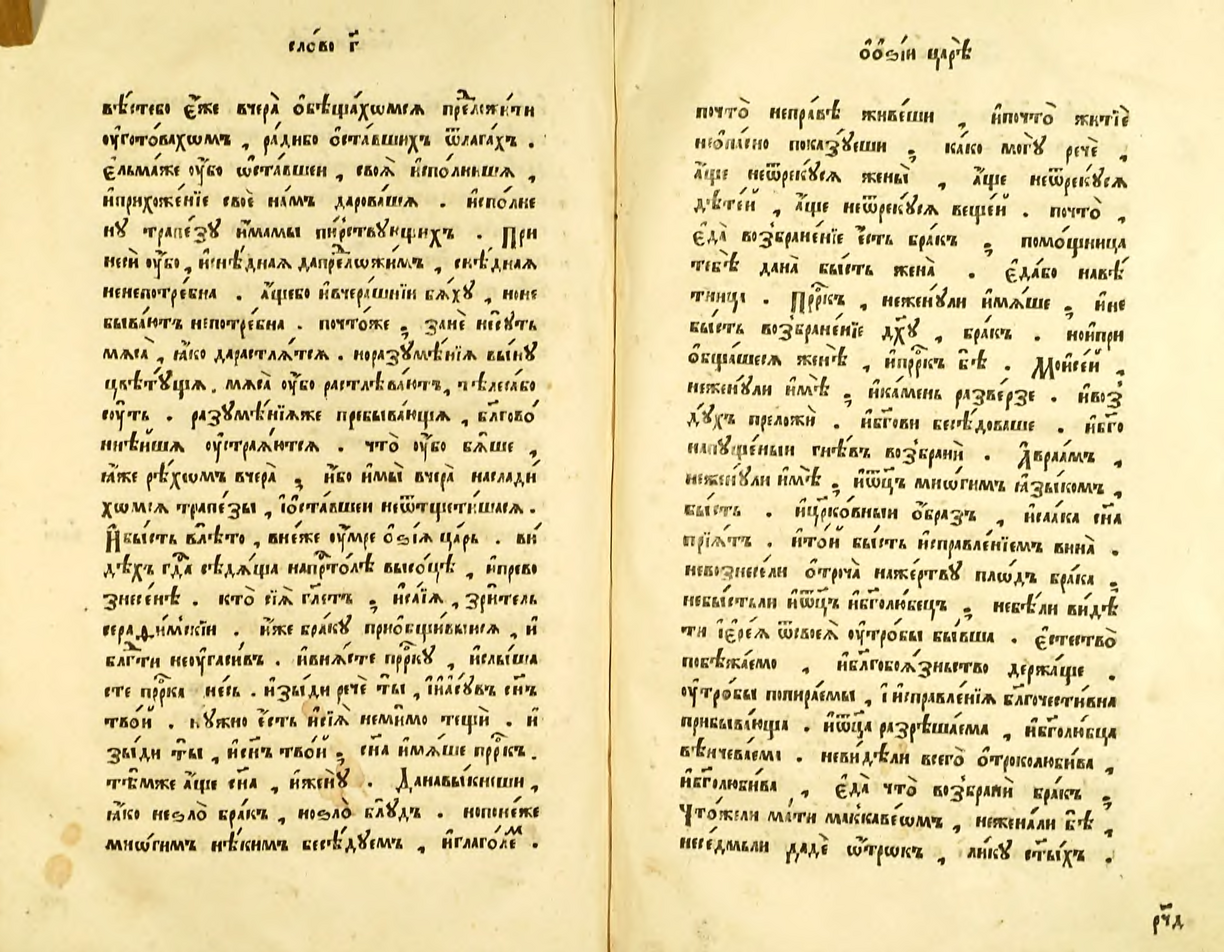 сло́во г҃
вѣ́стебо є҆́же вчера̀ ѻ҆бѣща́хѡмсѧ прⷣложи́ти
ѹ҆гото́вахѡмъ , ра́дибо ѻ҆ста́вшихъ ѿлага́хъ .
є҆льма́же ѹ҆́бо ѡ҆ста́вшеи , своѧ̀ и҆спо́лнишѧ ,
и҆прихоже́нїе своѐ на́мъ дарова́шѧ . и҆спо́лне
нѹ трапе́зѹ и҆́мамы пи́рствꙋющихъ . При
неси̑ ѹ҆́бо , и҆снѣ́днаѧ дапрⷣлѡжи́мъ , снѣ́днаѧ
ненепотре́бна . а҆́щебо и҆вчера́шнїи бѧ́хѹ , ноне
быва́ютъ непотре́бна . почто́же ; занѐ не́сѹть
мѧса̀ , ꙗ҆́ко дарастлѧ́тсѧ . норазꙋмѣ́нїѧ вы́нꙋ
цвѣтꙋ́щїѧ . мѧса̀ ѹ҆́бо растлѣва́ютъ , тѣлеса́бо
сѹ́ть . разꙋмѣ́нїѧже пребыва́ющїѧ , бл҃гово́
ннѣ́йшѧ ѹ҆стра́ѧютсѧ . что̀ ѹ҆́бо бѧ́ше ,
ꙗ҆́же рѣ́хѡмъ вчера̀ ; и҆́бо и҆мы̀ вчера̀ наслади́
хѡмсѧ трапе́зы , і҆ѻ҆ста́вшеи неѿтщети́шасѧ .
И҆бы́сть влѣ́то , вне́же ѹ҆́мре ѻ҆ѕі́ѧ ца́рь . ви́
дѣхъ гдⷭ҇а сѣдѧ́ща напрⷭ҇то́лѣ высо́цѣ , и҆прево
знесе́нѣ . кто̀ сїѧ̀ гл҃етъ ; и҆са́їѧ , зри́тель
серафи́мскїи . и҆́же бра́кѹ приѻбщи́выисѧ , и҆
бл҃гⷣти неѹ҆гаси́въ . и҆внѧ́сте прⷪ҇ркꙋ , и҆слы́ша
сте прⷪ҇рка не́сь . и҆зы́ди речѐ ты̀ , і҆і҆асꙋ́въ сн҃ъ
тво́й . нꙋ́жно є҆́сть и҆сїѧ̀ неми́мо тещѝ . и҆
зы́ди ты̀ , и҆сн҃ъ тво́й ; сн҃а и҆мѧ́ше прⷪ҇ркъ .
тѣ́мже а҆́ще сн҃а , и҆женꙋ̀ . Данавы́книши ,
ꙗ҆́ко неѕло̀ бра́къ , ноѕло̀ блꙋ́дъ . нопоне́же
мнѡ́гимъ нѣ́кимъ бесѣ́дꙋемъ , и҆глаго́леⷨ .
ѻ҆ ѻ҆ѕі́и царѣ̀
почто̀ непра́вѣ живе́ши , и҆почто̀ житїѐ
неѻ҆па́сно показꙋ́еши ; ка́ко могꙋ̀ речѐ ,
а҆́ще неѿрекꙋ́сѧ жены̀ , а҆́ще неѿрекꙋ́сѧ
дѣте́й , а҆́ще неѿрекꙋ́сѧ веще́й . почто̀ ,
є҆да̀ возбране́нїе є҆́сть бра́къ ; помо́щница
тебѣ̀ дана̀ бы́сть жена̀ . є҆да́бо навѣ́
тница . Прⷪ҇ркъ , неженꙋ́ли и҆мѧ́ше ; и҆не
бы́сть возбране́нїе дх҃ꙋ , бра́къ . нои҆при
ѻ҆бща́шесѧ женѣ̀ , и҆прⷪ҇ркъ бѣ̀ . Мѡѷсе́й ,
неженꙋ́ли и҆мѣ̀ ; и҆ка́мень разве́рзе . и҆во́з
дꙋхъ преложѝ . и҆бг҃ови бесѣ́доваше . и҆бг҃о
напꙋще́ныи гнѣ́въ возбранѝ . А҆враа́мъ ,
неженꙋ́ли и҆мѣ̀ ; и҆ѻ҆ц҃ъ мнѡ́гимъ ꙗ҆зы́комъ ,
бы́сть . и҆цр҃ко́вныи ѻ҆́бразъ , и҆саа́ка сн҃а
прїѧ́тъ . и҆то́й бы́сть и҆справле́нїемъ вина̀ .
невознесе́ли ѻ҆троча̀ наже́ртвꙋ плѡ́дъ бра́ка ;
небы́стьли и҆ѻ҆ц҃ъ и҆бг҃олю́бецъ ; небѣ́ли ви́дѣ
ти і҆ере́ѧ ѿсвоеѧ̀ ѹ҆тро́бы бы́вша . є҆стество̀
побѣжа́емо , и҆благобоѧ́зньство держа́ще .
ѹ҆тро́бы попира́емы , і҆и҆справле́нїѧ бл҃гочести́вна
прибыва́юща . и҆ѻ҆ц҃а разрѣша́ема , и҆бг҃олю́бца
вѣнчева́ема . неви́дѣли всего̀ ѻ҆троколюби́ва ,
и҆бг҃олюби́ва , є҆да̀ что̀ возбранѝ бра́къ ;
Что́жели ма́ти маккаве́ѡмъ , нежена́ли бѣ̀ ,
несе́дмьли дадѐ ѡ҆́трѡкъ , ли́кꙋ ст҃ы́хъ .
рч҃д